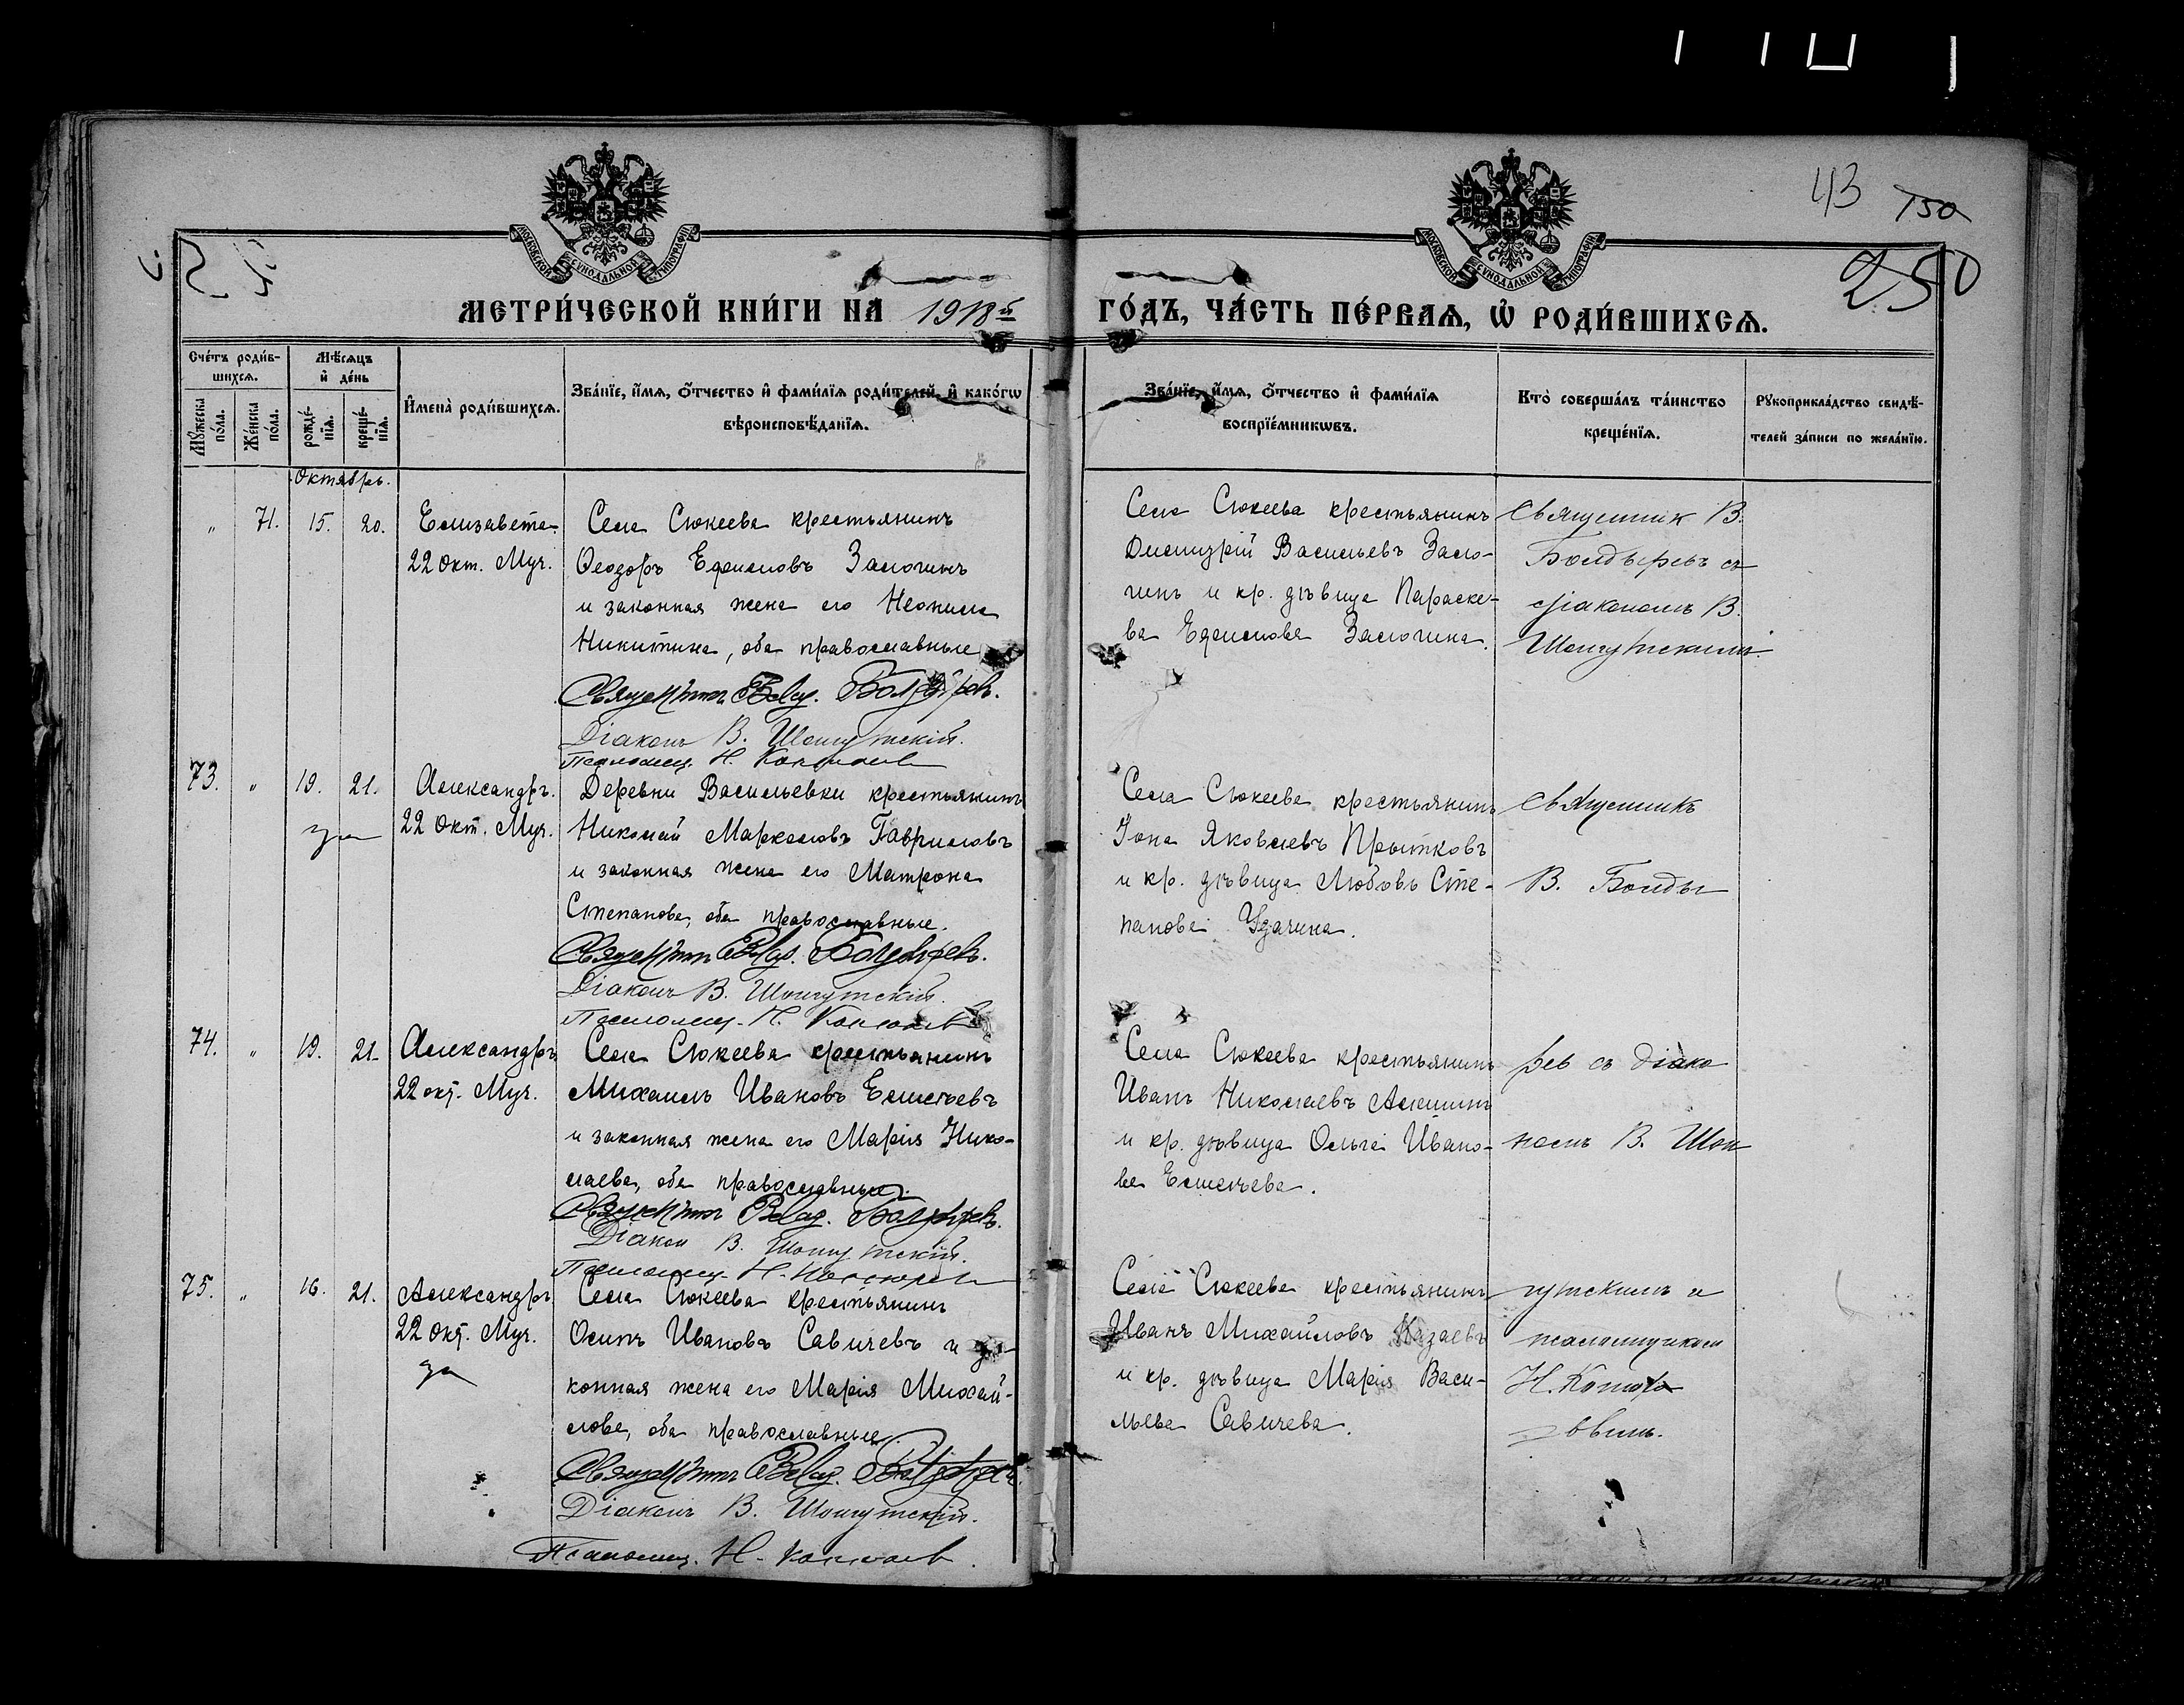 43 150
250
МОСКОВСКОЙ СѴНОДАЛЬНОЙ ТИПОГРАФІИ
МОСКОВСКОЙ СѴНОДАЛЬНОЙ ТИПОГРАФІИ
МЕТРИ́ЧЕСКОЙ КНИ́ГИ НА 1918й ГО́ДЪ, ЧА́СТЬ ПЕ́РВАѦ, Ѡ҆ РОДИ́ВШИХСѦ.
Сче́тъ роди́в-
шихсѧ.
Мѣ́сѧцъ
и҆ де́нь
Мꙋ́жеска по́ла.
Же́нска по́ла.
рожде́-
нїѧ.
креще́-
нїѧ.
И҆мена̀ роди́вшихсѧ.
Зва́нїе, и҆́мѧ, ѻ҆́тчество и҆ фами́лїѧ роди́телей, и҆ како́гѡ
вѣроисповѣ́данїѧ.
Зва́нїе, и҆́мѧ, ѻ҆́тчество и҆ фами́лїѧ
воспрїе́мникѡвъ.
Кто̀ соверша́лъ та́инство
креще́нїѧ.
Рꙋкоприкла́дство свидѣ́-
телей за́писи по жела́нїю.
Октябрь.
" 71. 15. 20. Елизавета
22 Окт. Муч.
Села Сюкеева крестьянинъ
Ѳеодоръ Ефимовъ
и законная жена его Неонила
Никитина, оба православные
Священникъ Влад. Болдыревъ.
Діаконъ В. Шонгутскій.
Псаломщ. Н.
Села Сюкеева крестьянинъ
Димитрій Васильевъ
и кр. дѣвица Параске-
ва
Священник В.
Болдыревъ съ
діакономъ В.
Шонгутскимъ.
73. " 19. 21. Александръ.
22 Окт. Муч.
Деревни Васильевки крестьянинъ
Николай Маркеловъ Гавриловъ
и законная жена его Матрона
Степанова, оба православные.
Священникъ Влад. Болдыревъ.
Діаконъ В. Шонгутскій.
Псаломщ. Н.
Села Сюкеева крестьянинъ
Іона Яковлевъ Прытковъ
и кр. дѣвица Любовь Сте-
панова Удачина.
Священникъ
В. Болды
74. " 19. 21. Александръ
22 окт. Муч.
Села Сюкеева крестьянинъ
Михаилъ Ивановъ Елисѣевъ
и законная жена его Марія Нико-
лаева, оба православные.
Священникъ Влад. Болдыревъ.
Діакон В. Шонгутскій.
Псаломщ. Н.
Села Сюкеева крестьянинъ
Иванъ Николаевъ Алешинъ
и кр. дѣвица Ольга Ивано-
ва Елисѣева.
рев съ діако
номъ В. Шон
75. " 16. 21. Александръ
22 Окт. Муч.
Села Сюкеева крестьянинъ
Осипъ Ивановъ Савичевъ и за-
конная жена его Марія Михай-
лова, оба православные.
Священникъ Влад. Болдыревъ.
Діаконъ В. Шонгутскій.
Псаломщ. Н.
Села Сюкеева крестьянинъ
Иванъ Михайловъ Казаевъ
и кр. дѣвица Марія Васи-
льева Савичева.
гутскимъ и
псаломщиком
Н.